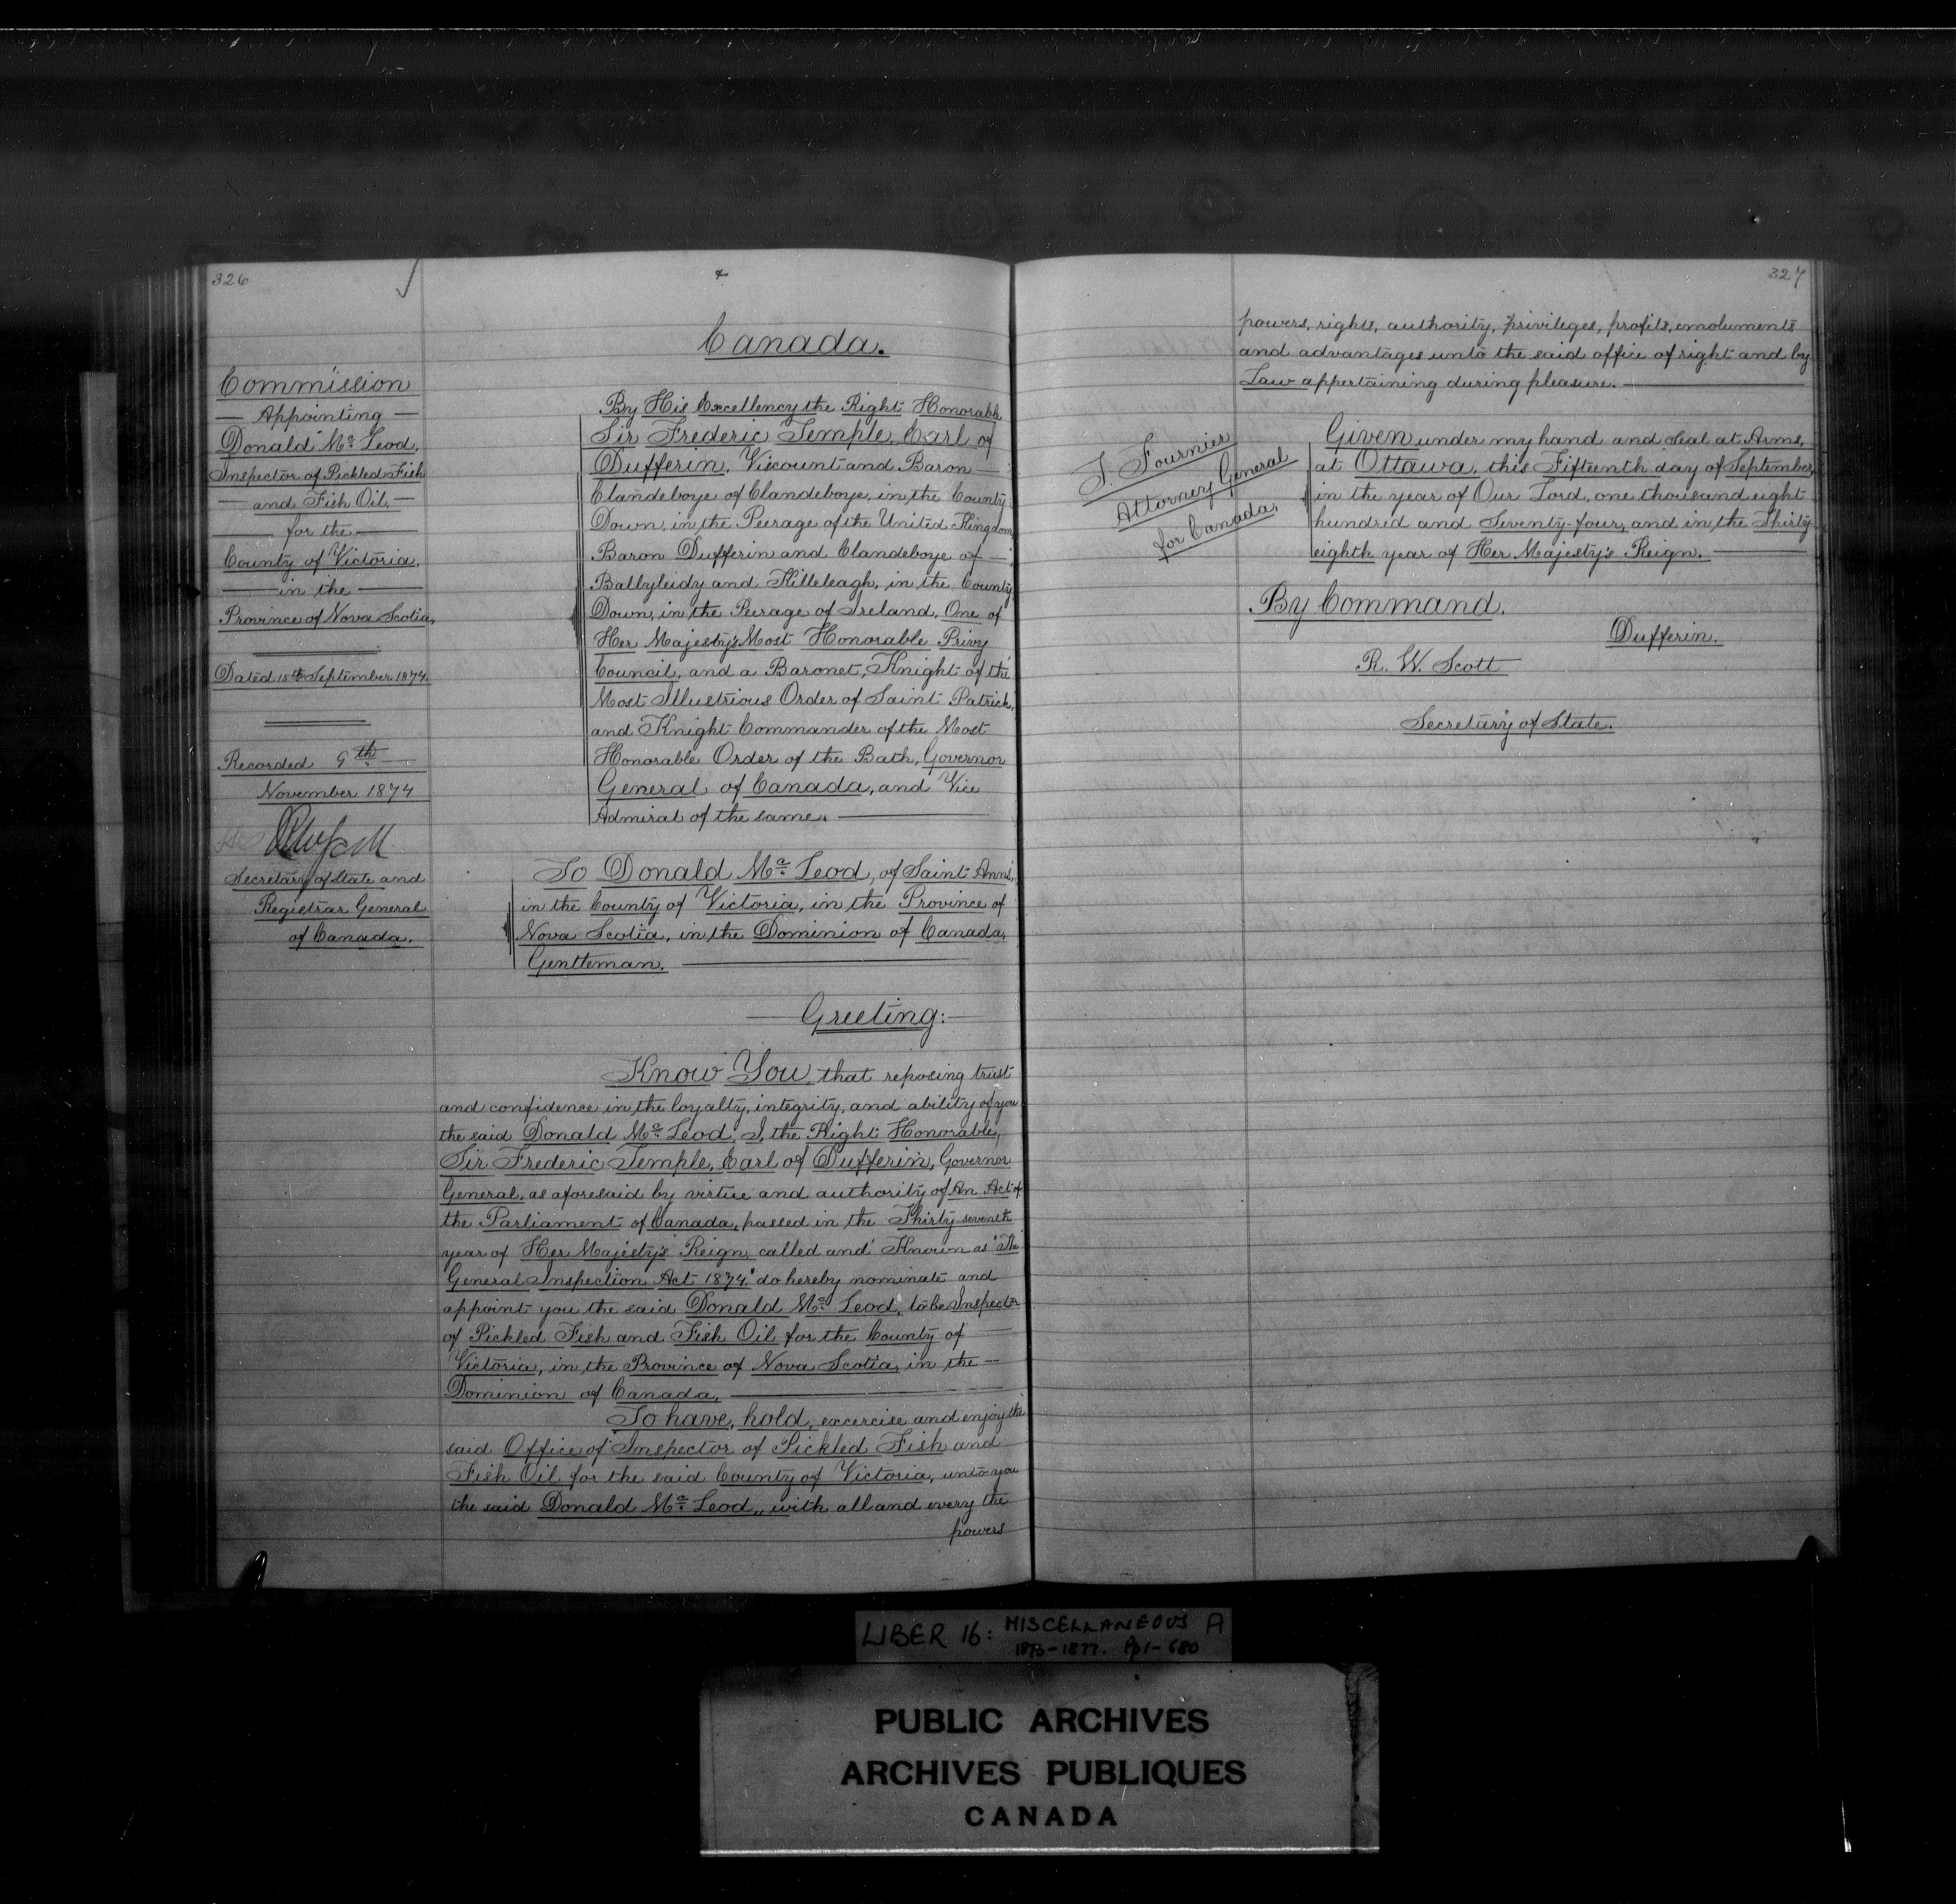 326
Commission
Appointing
Donald Mc. Leod,
Inspector of Pickled Fish
and Fish Oil,
for the
County of Victoria,
in the
Province of Nova Scotia,
Dated 15th September 1874.
Recorded 9th
November 1874
Secretary of State and
Registrar General
of Canada.
Canada.
By His Excellency the Right Honorable
Sir Frederic Temple, Earl of
Dufferin, Viscount and Baron
Clandeboye of Clandeboye, in the County
Down, in the Peerage of the United Kingdom,
Baron Dufferin and Clandeboye of
Ballyleidy and Killeleagh, in the County
Down, in the Peerage of Ireland, One of
Her Majesty's Most Honorable Privy
Council, and a Baronet, Knight of the
Most Illustrious Order of Saint Patrick,
and Knight Commander of the Most
Honorable Order of the Bath, Governor
General of Canada, and Vice
Admiral of the same.
To Donald Mc. Leod, of Saint Anns,
in the County of Victoria, in the Province of
Nova Scotia, in the Dominion of Canada,
Gentleman.
Greeting:
Know You, that reposing trust
and confidence in the loyalty, integrity, and ability of you
the said Donald Mc. Leod, I, the Right Honorable,
Sir Frederic Temple, Earl of Dufferin, Governor
General, as aforesaid by virtue and authority of An Act of
the Parliament of Canada, passed in the Thirty seventh
year of Her Majesty's Reign, called and Known as "The
General Inspection Act 1874," do hereby nominate and
appoint you the said Donald Mc. Leod, to be Inspector
of Pickled Fish and Fish Oil for the County of
Victoria, in the Province of Nova Scotia, in the
Dominion of Canada,
To have, hold, excercise and enjoy the
said Office of Inspector of Pickled Fish and
Fish Oil for the said County of Victoria, unto you
the said Donald Mc. Leod,, with all and every the
powers
327
powers, rights, authority, privileges, profits, emoluments
and advantages unto the said office of right and by
Law appertaining during pleasure.
T. Fournier
Attorney General
for Canada,
Given under my hand and Seal at Arms,
at Ottawa, this Fifteenth day of September,
in the year of Our Lord, one thousand eight
hundred and Seventy-four, and in the Thirty
eighth year of Her Majesty's Reign.
By Command.
Dufferin.
R. W. Scott
Secretary of State.
LIBER 16: MISCELLANEOUS A
1873-1877. Pp 1-680
PUBLIC ARCHIVES
ARCHIVES PUBLIQUES
CANADA